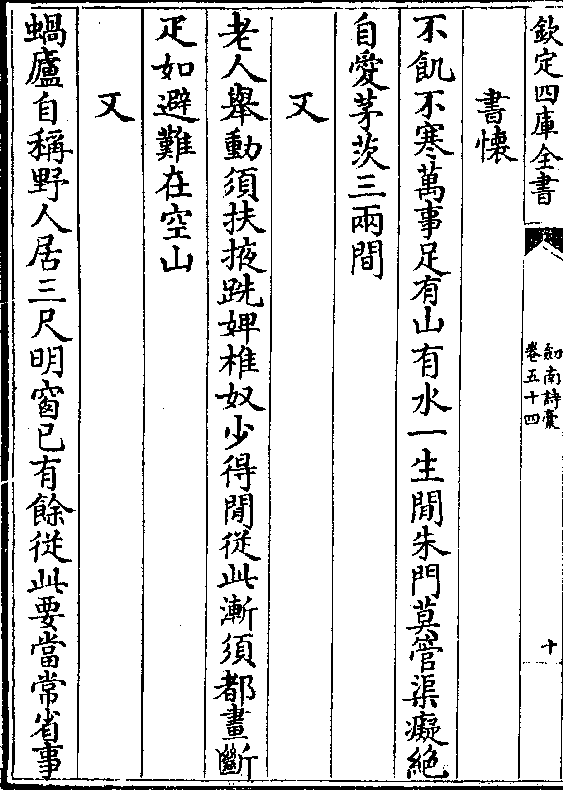 欽定四庫全書
劎南詩藁
卷五十四
十
書懷
不飢不寒萬事足有山有水一生間朱門莫管渠癡絶
自愛茅茨三兩間
又
老人舉動須扶掖跣婢椎奴少得閒從此漸須都畫斷
疋如避難在空山
又
蝸廬自稱野人居三尺明窗已有餘從此要當常省事